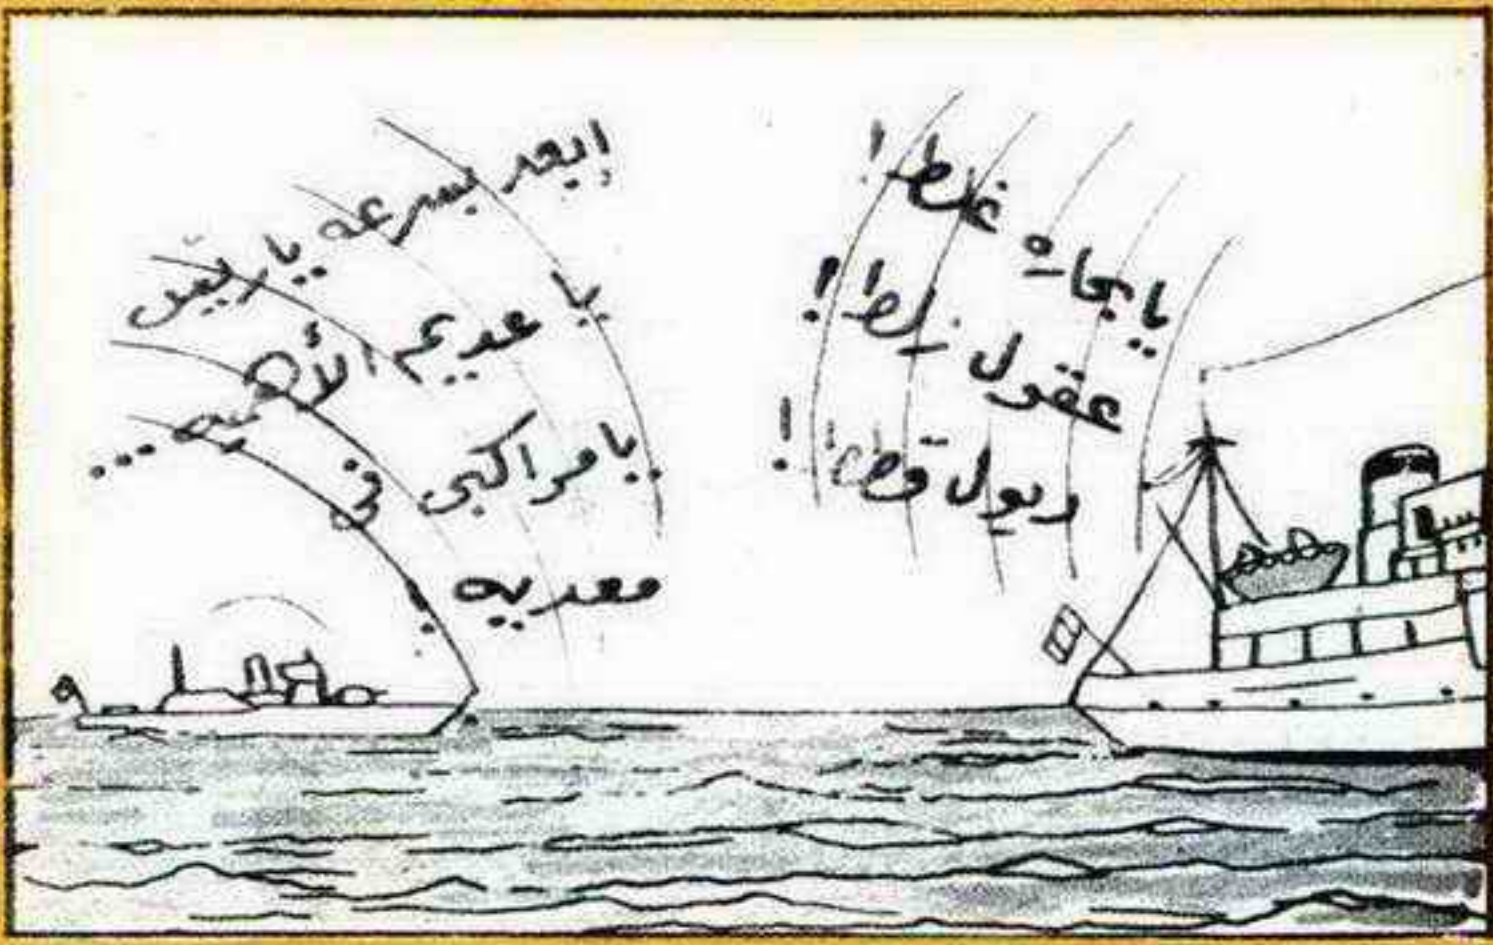 يا بحاره غلط !
عقول زلط !
ديول قطط !
إبعد بسرعه ياريّس
يا عديم الأهميه ...
يا مراكبى فى
معديه !